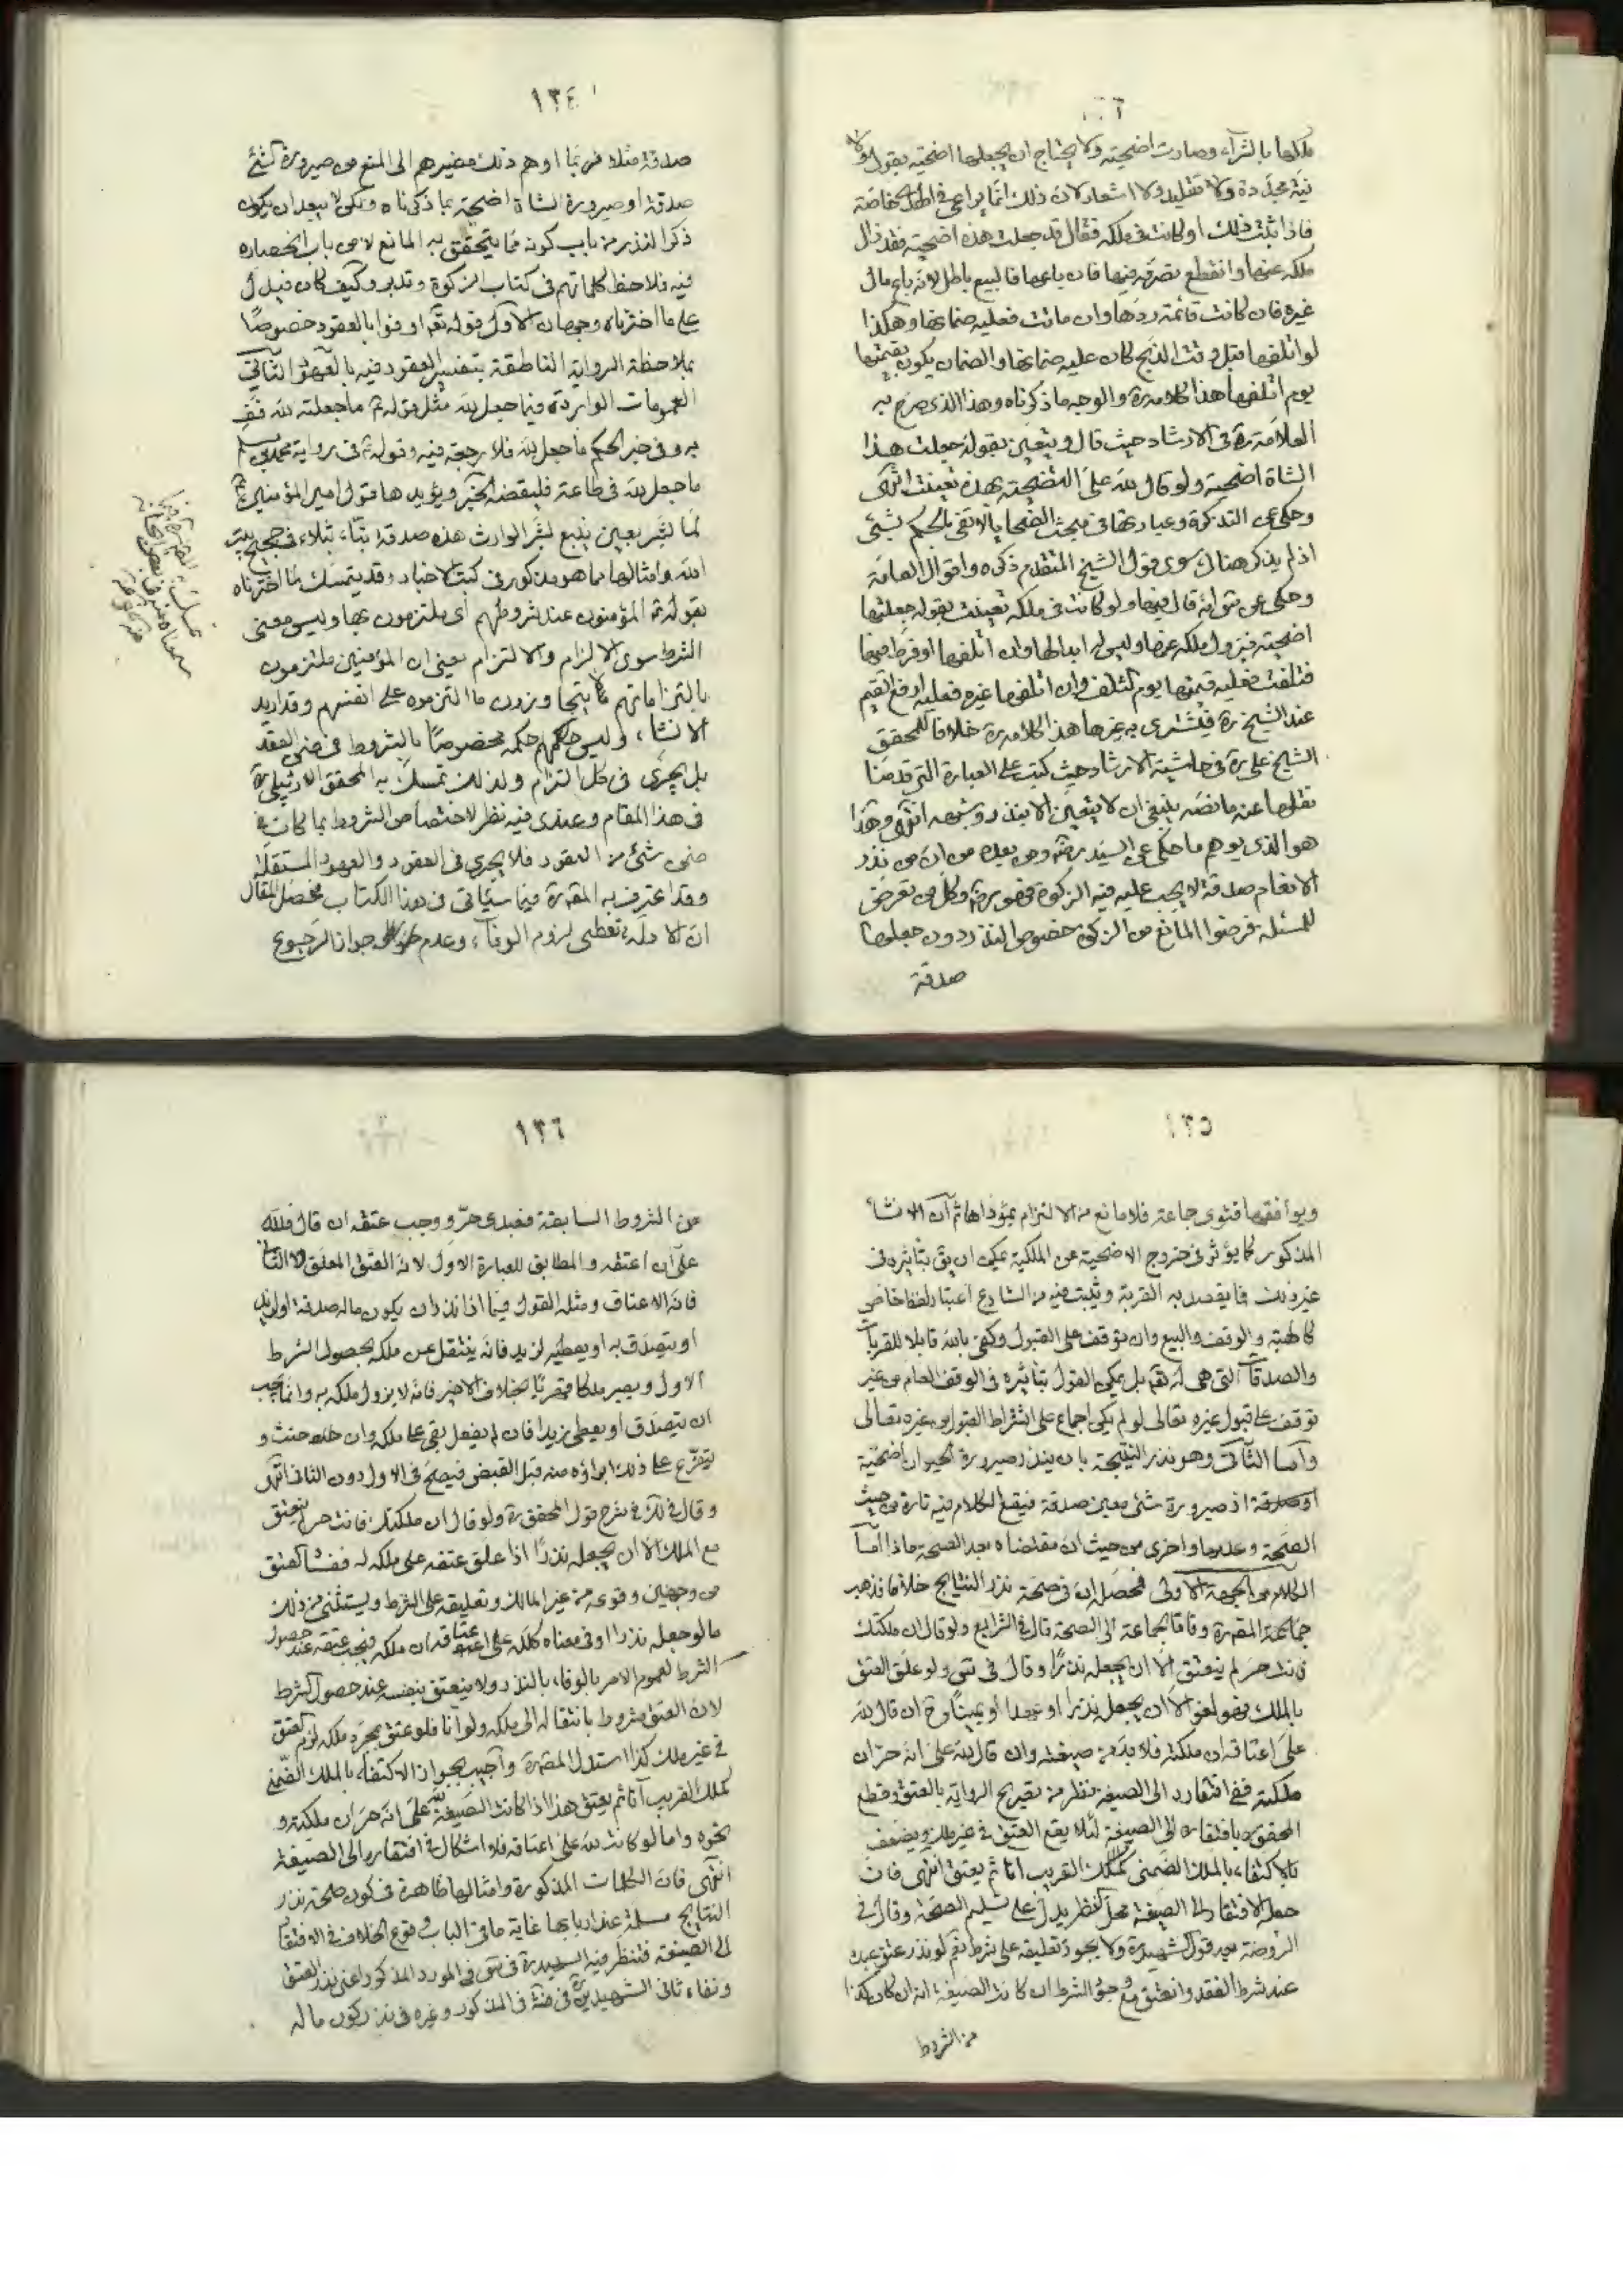 ملكها بالشراء وصارت اضحيته ولا يحتاج ان يجعلها اضحيته بقول ولا
نية مجددة ولا تقليد ولا اشعار لان ذلك انما يراعى في الهدى خاصة
فاذا ثبت ذلك او كانت في ملكه فقال قد جعلت هذه اضحية فقد زال
ملكه عنها وانقطع تصرفه فيها فان باعها فالبيع باطل لانه باع مال
غيره فان كانت قائمة ردها وان ماتت فعليه ضمانها وهكذا
لو اتلفها قبل وقت الذبح كان عليه ضمانها والضمان يكون بقيمتها
يوم اتلفها هذا كلامه ره والوجه ما ذكرناه وهذا الذي صرح به
العلامة ره في الارشاد حيث قال ويتعين بقوله جعلت هذا
الشاة اضحية ولو قال لله علي التضحية بهذه تعينت انتهى
وحكى عن التذكرة وعبارتها في مبحث الضحايا لا تفي بالحكم بشئ
اذ لم يذكر هناك سوى قول الشيخ المتقدم ذكره واقوال العامة
وحكى عن تي انه قال فيها ولو كانت في ملكه تعينت بقوله جعلتها
اضحية فيزول ملكه عنها وليس له ابدالها وان اتلفها او فرط فيها
فتلفت فعليه قيمتها يوم تلف وان اتلفها غيره فعليه ارفع القيم
عند الشيخ ره فيشترى به غيرها هذا كلامه ره خلافا للمحقق
الشيخ علي ره في حاشية الارشاد حيث كتب على العبارة التي قدمنا
نقلها عنه ما نصه ينبغي ان لا يتعين الا بنذر وشبهه انتهى وهذا
هو الذي يوهم ما حكى عن السيد ره ومن بعده من ان من نذر
الانعام صدقة لا يجب عليه فيه الزكوة وكل من تعرض
للمسئلة فرضوا المانع من الزكوة خصوص النذر دون جعلها
صدقة
١٣٤
صدقة مثلا فربما اوهم ذلك مصيرهم الى المنع من صيرورة الشئ
صدقة او صيرورة الشاة اضحية بما ذكرناه ولكن لا يبعد ان يكون
ذكر النذر من باب كونه مما يتحقق به المانع لا من باب انحصاره
فيه فلاحظ كلماتهم في كتاب الزكوة وتدبر وكيف كان فيدل
على ما اخترناه وجهان الاول قوله تعم اوفوا بالعقود خصوصا
بملاحظة الرواية الناطقة بتفسير العقود فيه بالعهود الثاني
العمومات الواردة فيما جعل لله مثل قوله ع ما جعلته لله فف
به وفي خبر الحكم ما جعل لله فلا رجعة فيه وقوله ع في رواية محمد بن مسلم
ما جعل لله في طاعة فليقضه الخبر ويؤيدها قول امير المؤمنين ع
لما بشر بعين ينبع بشر الوارث هذه صدقة بتاء بتلاء في حجيج بيت
الله وامثالها مما هو مذكور في كتب الاخبار وقد يتمسك لما اخترناه
بقوله ع المؤمنون عند شروطهم اى ملتزمون بها وليس معنى
الشرط سوى الالزام والالتزام يعني ان المؤمنين ملتزمون
بالتزاماتهم لا يتجاوزون ما التزموه على انفسهم وقد اريد
الانشاء وليس حكمه مخصوصا بالشروط في ضمن العقد
بل يجرى في كل التزام ولذلك تمسك به المحقق الاردبيلي ره
في هذا المقام وعندى فيه نظر لاختصاص الشروط بما كان في
ضمن شئ من العقود فلا يجري في العقود والعهود المستقلة
وقد اعترف به المص ره فيما سيأتي في هذا الكتاب فحصل المقال
ان الادلة تعطى لزوم الوفاء وعدم جواز الرجوع
١٣٥
ويوافقها فتوى جماعة فلا مانع من الالتزام بمؤداها ثم ان الانشاء
المذكور كما يؤثر في خروج الاضحية عن الملكية يمكن ان يق بتاثيره في
غير ذلك مما يقصد به القربة وثبت فيه من الشارع اعتبار لفظ خاص
كالهبة والوقف والبيع وان توقف على القبول وكفى بالله قابلا للقربات
والصدقات التي هي له تعم بل يمكن القول بتاثيره في الوقف العام من غير
توقف على قبول غيره تعالى لو لم يكن اجماع على اشتراط القبول من غيره تعالى
واما الثاني وهو نذر النتيجة بان ينذر صيرورة الحيوان اضحية
او صدقة او صيرورة شئ معين صدقة فيقع الكلام فيه تارة من حيث
الصحة وعدمها واخرى من حيث ان مقتضاه بعد الصحة ماذا اما
الكلام من الجهة الاولى فمحصله ان في صحة نذر النتايج خلافا فذهب
جماعة المص ره وفاقا لجماعة الى الصحة قال في الشرايع ولو قال ان ملكتك
فانت حر لم ينعتق الا ان يجعله نذرا وقال في تي ولو علق العتق
بالملك فهو لغو الا ان يجعل نذرا او عهدا او يمينا وح ان قال لله
علي اعتاقه ان ملكته فلا بد من صيغة وان قال لله علي انه حر ان
ملكته ففي افتقاره الى الصيغة نظر من تصريح الرواية بالعتق وقطع
المحقق بافتقاره الى الصيغة لئلا يقع العتق في غير ملك ويضعف
بالاكتفاء بالملك الضمني كملك القريب آنا ثم يعتق انتهى فان
جعله الافتقار الى الصيغة محل النظر يدل على تسليم الصحة وقال في
الروضة بعد قول الشهيد ره ولا يجوز تعليقه على شرط نعم لو نذر عتق عبده
عند شرط انعقد وانعتق مع وجود الشرط ان كانت الصيغة انه ان كان كذا
من الشروط
١٣٦
من الشروط السابقة فعبدى حر ووجب عتقه ان قال فلله
علي ان اعتقه والمطابق للعبارة الاول لانه العتق المعلق لا الثاني
فانه الاعتاق ومثله القول فيما اذا نذر ان يكون ماله صدقة او لزيد
او يتصدق به او يعطيه لزيد فانه ينتقل عن ملكه بحصول الشرط
الاول ويصير ملكا قهريا بخلاف الاخير فانه لا يزول ملكه به وانما يجب
ان يتصدق او يعطي زيدا فان لم يفعل بقي على ملكه وان حنث و
يتفرع على ذلك ابراؤه منه قبل القبض فيصح في الاول دون الثاني انتهى
وقال في لك في شرح قول المحقق ره ولو قال ان ملكتك فانت حر لم ينعتق
مع الملك الا ان يجعله نذرا اذا علق عتقه على ملكه له ففساد العتق
من وجهين وقوعه من غير المالك وتعليقه على الشرط ويستثنى من ذلك
ما لو جعله نذرا او في معناه كلله علي اعتاقه ان ملكه فيجب عتقه عند حصول
الشرط لعموم الامر بالوفاء بالنذر ولا ينعتق بنفسه عند حصول الشرط
لان العتق مشروط بانتقاله الى ملكه ولو آنا فلو عتق بمجرد ملكه لزم العتق
في غير ملك كذا استدل المص ره واجيب بجواز الاكتفاء بالملك الضمني
كملك القريب آنا ثم يعتق هذا اذا كانت الصيغة لله علي انه حر ان ملكته و
نحوه واما لو كانت لله علي اعتاقه فلا اشكال في افتقاره الى الصيغة
انتهى فان الكلمات المذكورة وامثالها ظاهرة في كون صحة نذر
النتايج مسلمة عند اربابها غاية ما في الباب وقوع الخلاف في الافتقار
الى الصيغة فتنظر فيه الشهيد ره في تي في المورد المذكور اعني نذر العتق
ونفاه ثاني الشهيدين ره في ضة في المذكور وغيره في نذر كون ماله